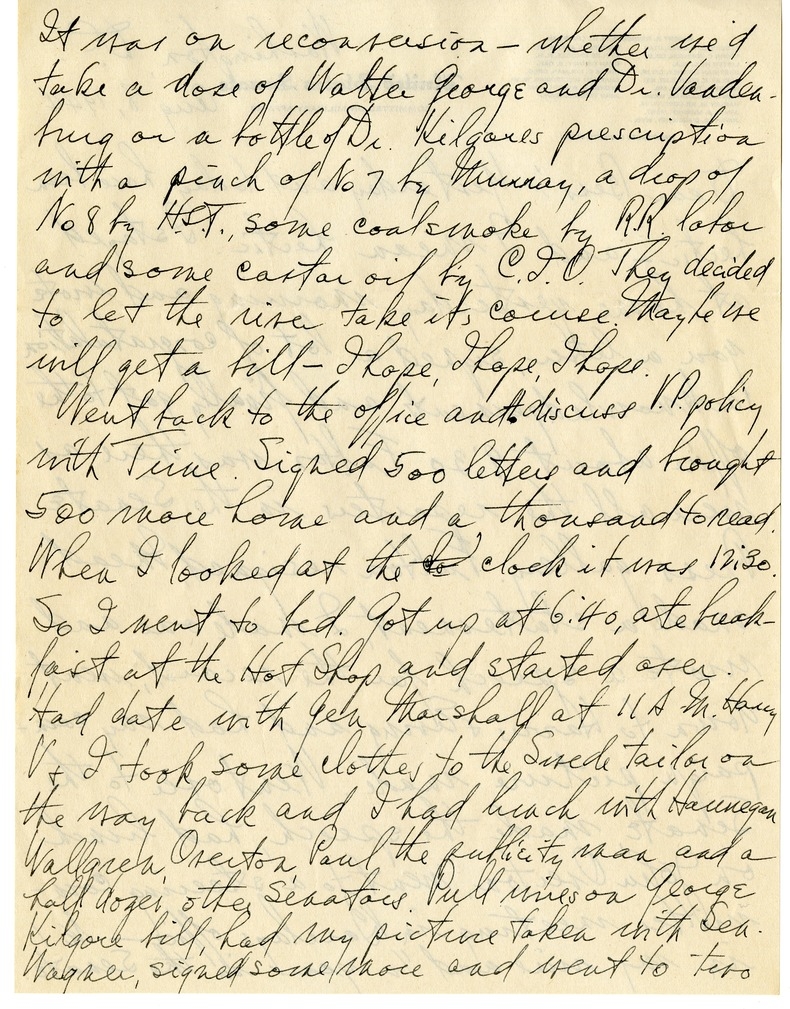 It was on reconversion – whether we'd
take a dose of Walter George and Dr. Vanden-
burg or a bottle of Dr. Kilgores prescription
with a pinch of No 7 by Murray, a drop of
No 8 by H.S.T., some coalsmoke by R.R. labor
and some castor oil by C.I.O. They decided
to let the river take its course. Maybe we
will get a bill – I hope, I hope, I hope.
Went back to the office and discuss V.P. policy
with Time. Signed 500 letters and brought
500 more home and a thousand to read.
When I looked at the clock it was 12:30.
So I went to bed. Got up at 6:40, ate break-
fast at the Hot Shop and started over.
Had date with Gen Marshall at 11 A.M. Harry
V + I took some clothes to the Swede tailor on
the way back and I had lunch with Hannegan
Wallgren, Overton, Paul the publicity man and a
half dozen other Senators. Pull wires on George
Kilgore bill, had my picture taken with Sen.
Wagner, signed some more and went to two